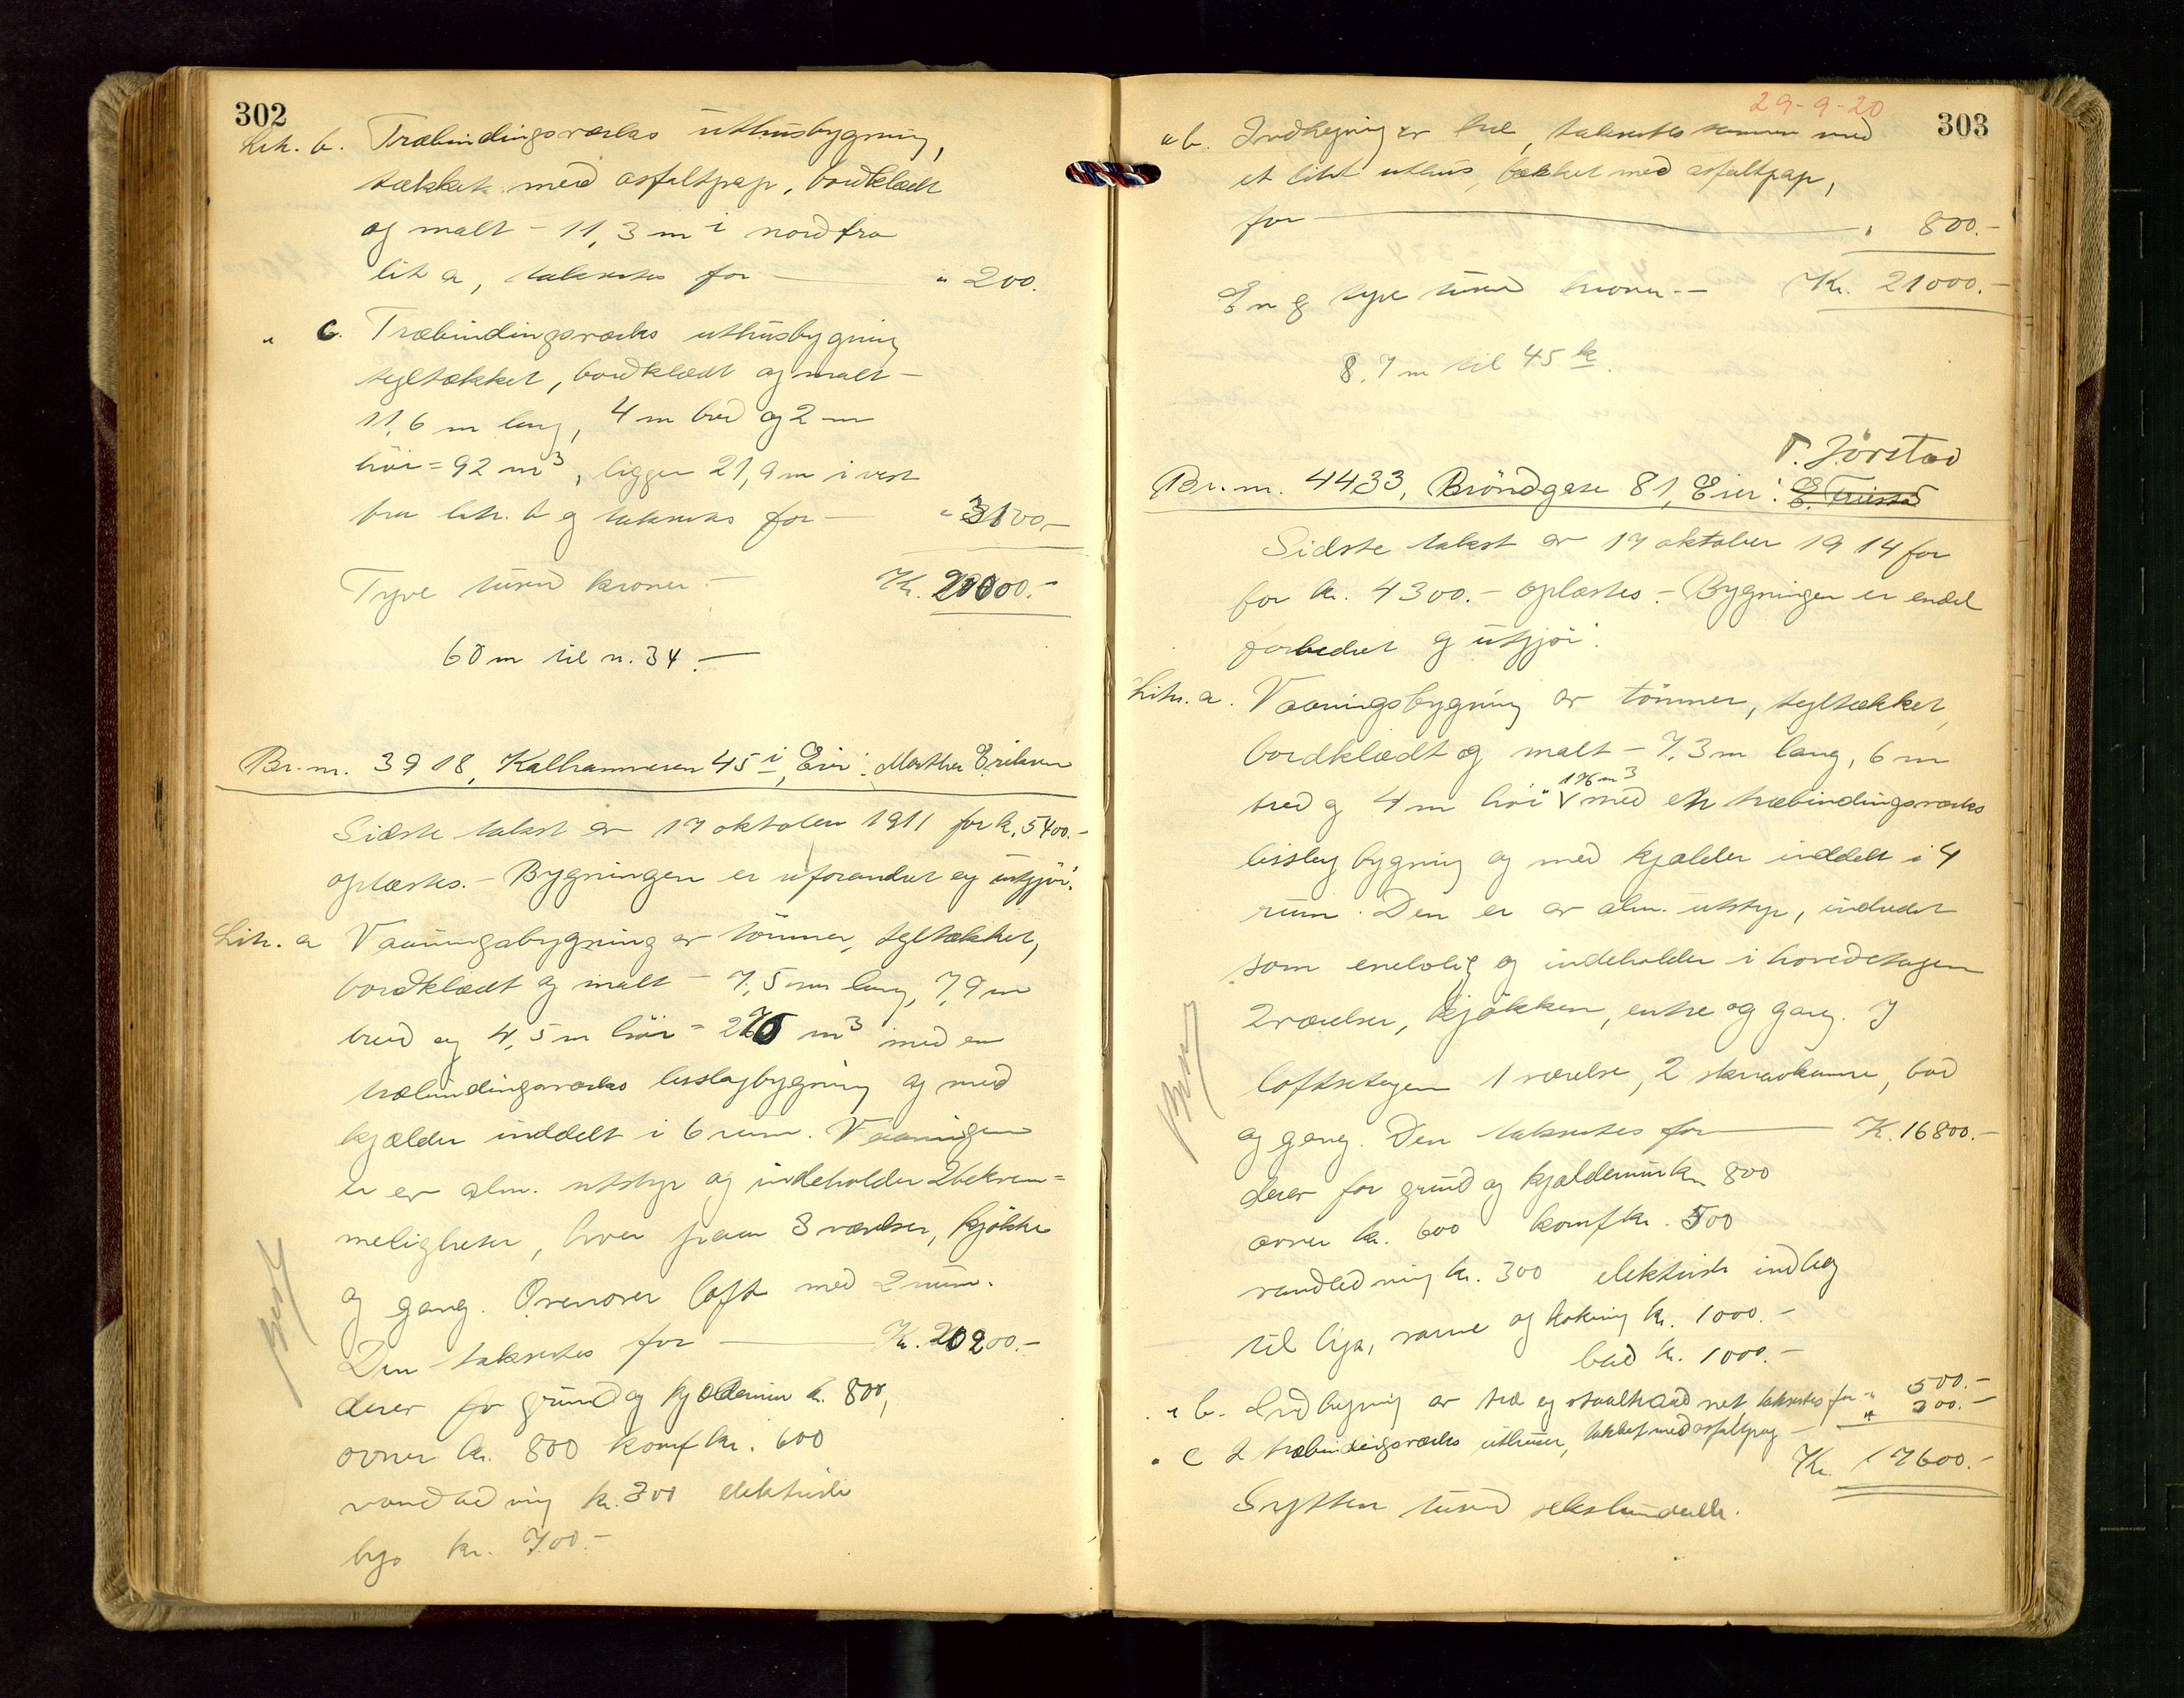 302
Litr. b. Træbindingsverks uthusbygning,
tækket med asfaltpap, bordklædt
og malt - 11,3 m i nord fra
lit a, takseres for — " 200.
" c. Træbindingsverks uthusbygning
tegltækket, bordklædt og malt -
11,6 m lang, 4 m bred og 2 m
höi = 92 m³, ligger 21,9 m i vest
fra litr. b og takseres for — " 3100,-
Tyve tusind kroner. — Kr.
60 m til n. 34. —
Br.nr. 3918, Kalhammeren 45 i, Eier: Marthe Eriksen
Sidste takst av 17 oktober 1911 for kr. 5400.-
oplæstes. - Bygningen er uforandret og utgjör:
Litr. a Vaaningsbygning av tömmer, tegltækket,
bordklædt og malt - 7,5 m lang, 7,9 m
bred og 4,5 m höi = m³ med en
træbindingsverks bislagbygning og med
kjælder inddelt i 6 rum. Vaaningen
er av alm. utstyr og indeholder 2 bekvem=
meligheter, hver paa 3 værelser, kjökken
og gang. Ovenover loft med 2 rum.
Den takseres for — Kr. 20200.-
derav for grund og kjældermur kr. 800,
ovner kr. 800 komf kr. 600
vandledning kr. 300 elektrisk
lys kr. 700.-
29-9-20
303
" b. Indhegning av træ, takseres sammen med
et litet uthus, tækket med asfaltpap,
for — " 800.-
En og tyve tusind kroner. — Kr. 21000.-
8,7 m til 45 k.
T. Jörstad
Br.nr. 4433, Bröndgate 81, Eier:
Sidste takst av 17 oktober 1914 for
for kr. 4300.- oplæstes. - Bygningen er endel
forbedret og utgjör:
Litr. a. Vaaningsbygning av tömmer, tegltækket,
bordklædt og malt - 7,3 m lang, 6 m
176 m³
bred og 4 m höi V med en træbindingsverks
bislagbygning og med kjælder inddelt i 4
rum. Den er av alm. utstyr, indredet
som enebolig og indeholder i hovedetagen
2 værelser, kjökken, entre og gang. I
loftsetagen 1 værelse, 2 skraakamre, bad
og gang. Den takseres for — K. 16800.-
derav for grund og kjældermur kr 800
ovner kr. 600 komf kr. 500
vandledning kr. 300 elektrisk indlæg
til lys, varme og koking kr. 1000.-
bad kr. 1000.-
" b. Indhegning av træ og staaltraad net takseres for " 500.-
" c 2 træbindingsverks uthuser, tækket med asfaltpap — " 300.-
Kr. 17600.-
Sytten tusind sekshundrede.